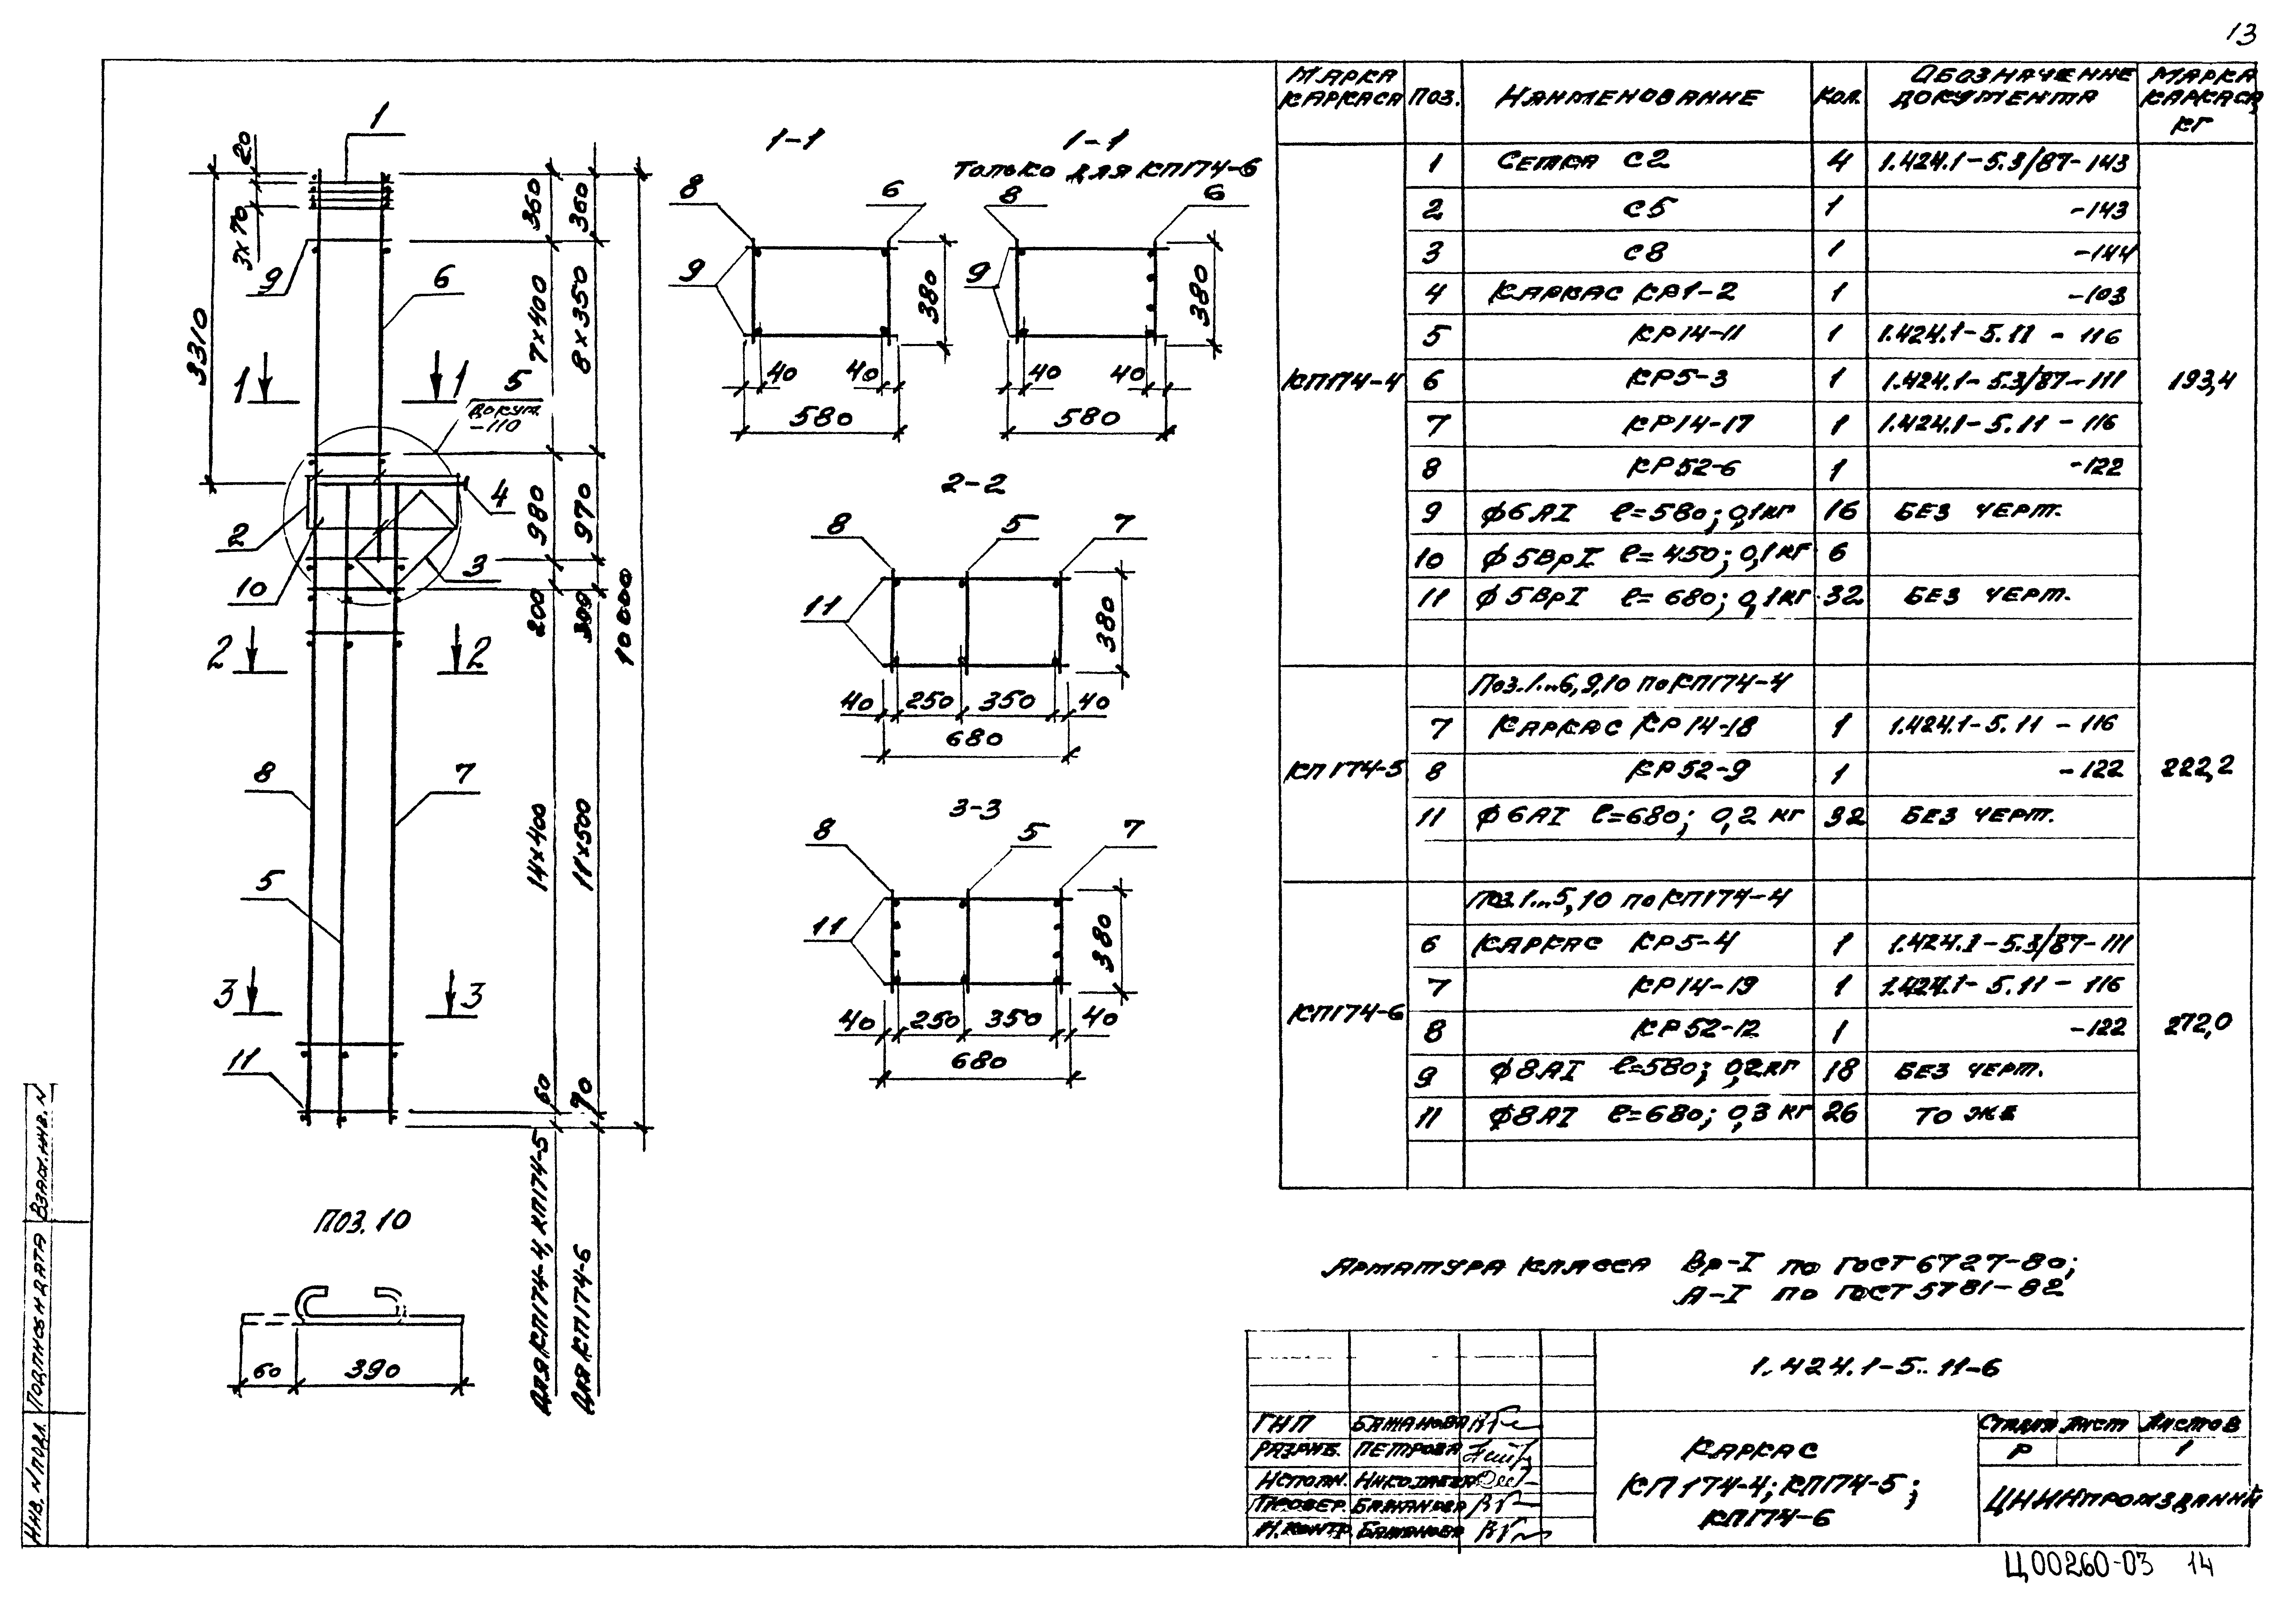 13
1
20
3×70
3310
9
6
1
1
5
докум.
-110
2
4
10
3
2
2
8
7
5
3
3
11
360
7×400
980
200
14×400
60
Для КП174-4, КП174-5
360
8×350
970
300
11×500
90
Для КП174-6
10 000
Поз. 10
60
390
1-1
8
6
9
380
40
40
580
1-1
только для КП174-6
8
6
9
380
40
40
580
2-2
8
5
7
11
380
40
250
350
40
680
3-3
8
5
7
11
380
40
250
350
40
680
Марка каркаса Поз. Наименование Кол. Обозначение документа Марка каркаса, кг
КП174-4 193,4
1 Сетка С2 4 1.424.1-5.3/87-143
2 С5 1 -143
3 С8 1 -144
4 Каркас КР1-2 1 -103
5 КР14-11 1 1.424.1-5.11 -116
6 КР5-3 1 1.424.1-5.3/87-111
7 КР14-17 1 1.424.1-5.11 -116
8 КР52-6 1 -122
9 ф6АI l=580; 0,1кг 16 Без черт.
10 ф5ВрI l=450; 0,1кг 6
11 ф5ВрI l=680; 0,1кг 32 Без черт.
КП174-5 222,2
Поз. 1...6, 9, 10 по КП174-4
7 Каркас КР14-18 1 1.424.1-5.11 -116
8 КР52-9 1 -122
11 ф6АI l=680; 0,2 кг 32 Без черт.
КП174-6 272,0
Поз. 1...5, 10 по КП174-4
6 Каркас КР5-4 1 1.424.1-5.3/87-111
7 КР14-19 1 1.424.1-5.11 -116
8 КР52-12 1 -122
9 ф8АI l=580; 0,2кг 18 Без черт.
11 ф8АI l=680; 0,3 кг 26 То же
Арматура класса Вр-I по ГОСТ 6727-80;
А-I по ГОСТ 5781-82
1.424.1-5.11-6
ГИП Бажанова
Разраб. Петрова
Исполн. Николаева
Провер. Бажанова
Н.контр. Бажанова
Каркас
КП174-4; КП174-5;
КП174-6
Стадия Лист Листов
Р 1
ЦНИИпромзданий
Инв. N подл. Подпись и дата Взам. инв. N
Ц00260-03 14